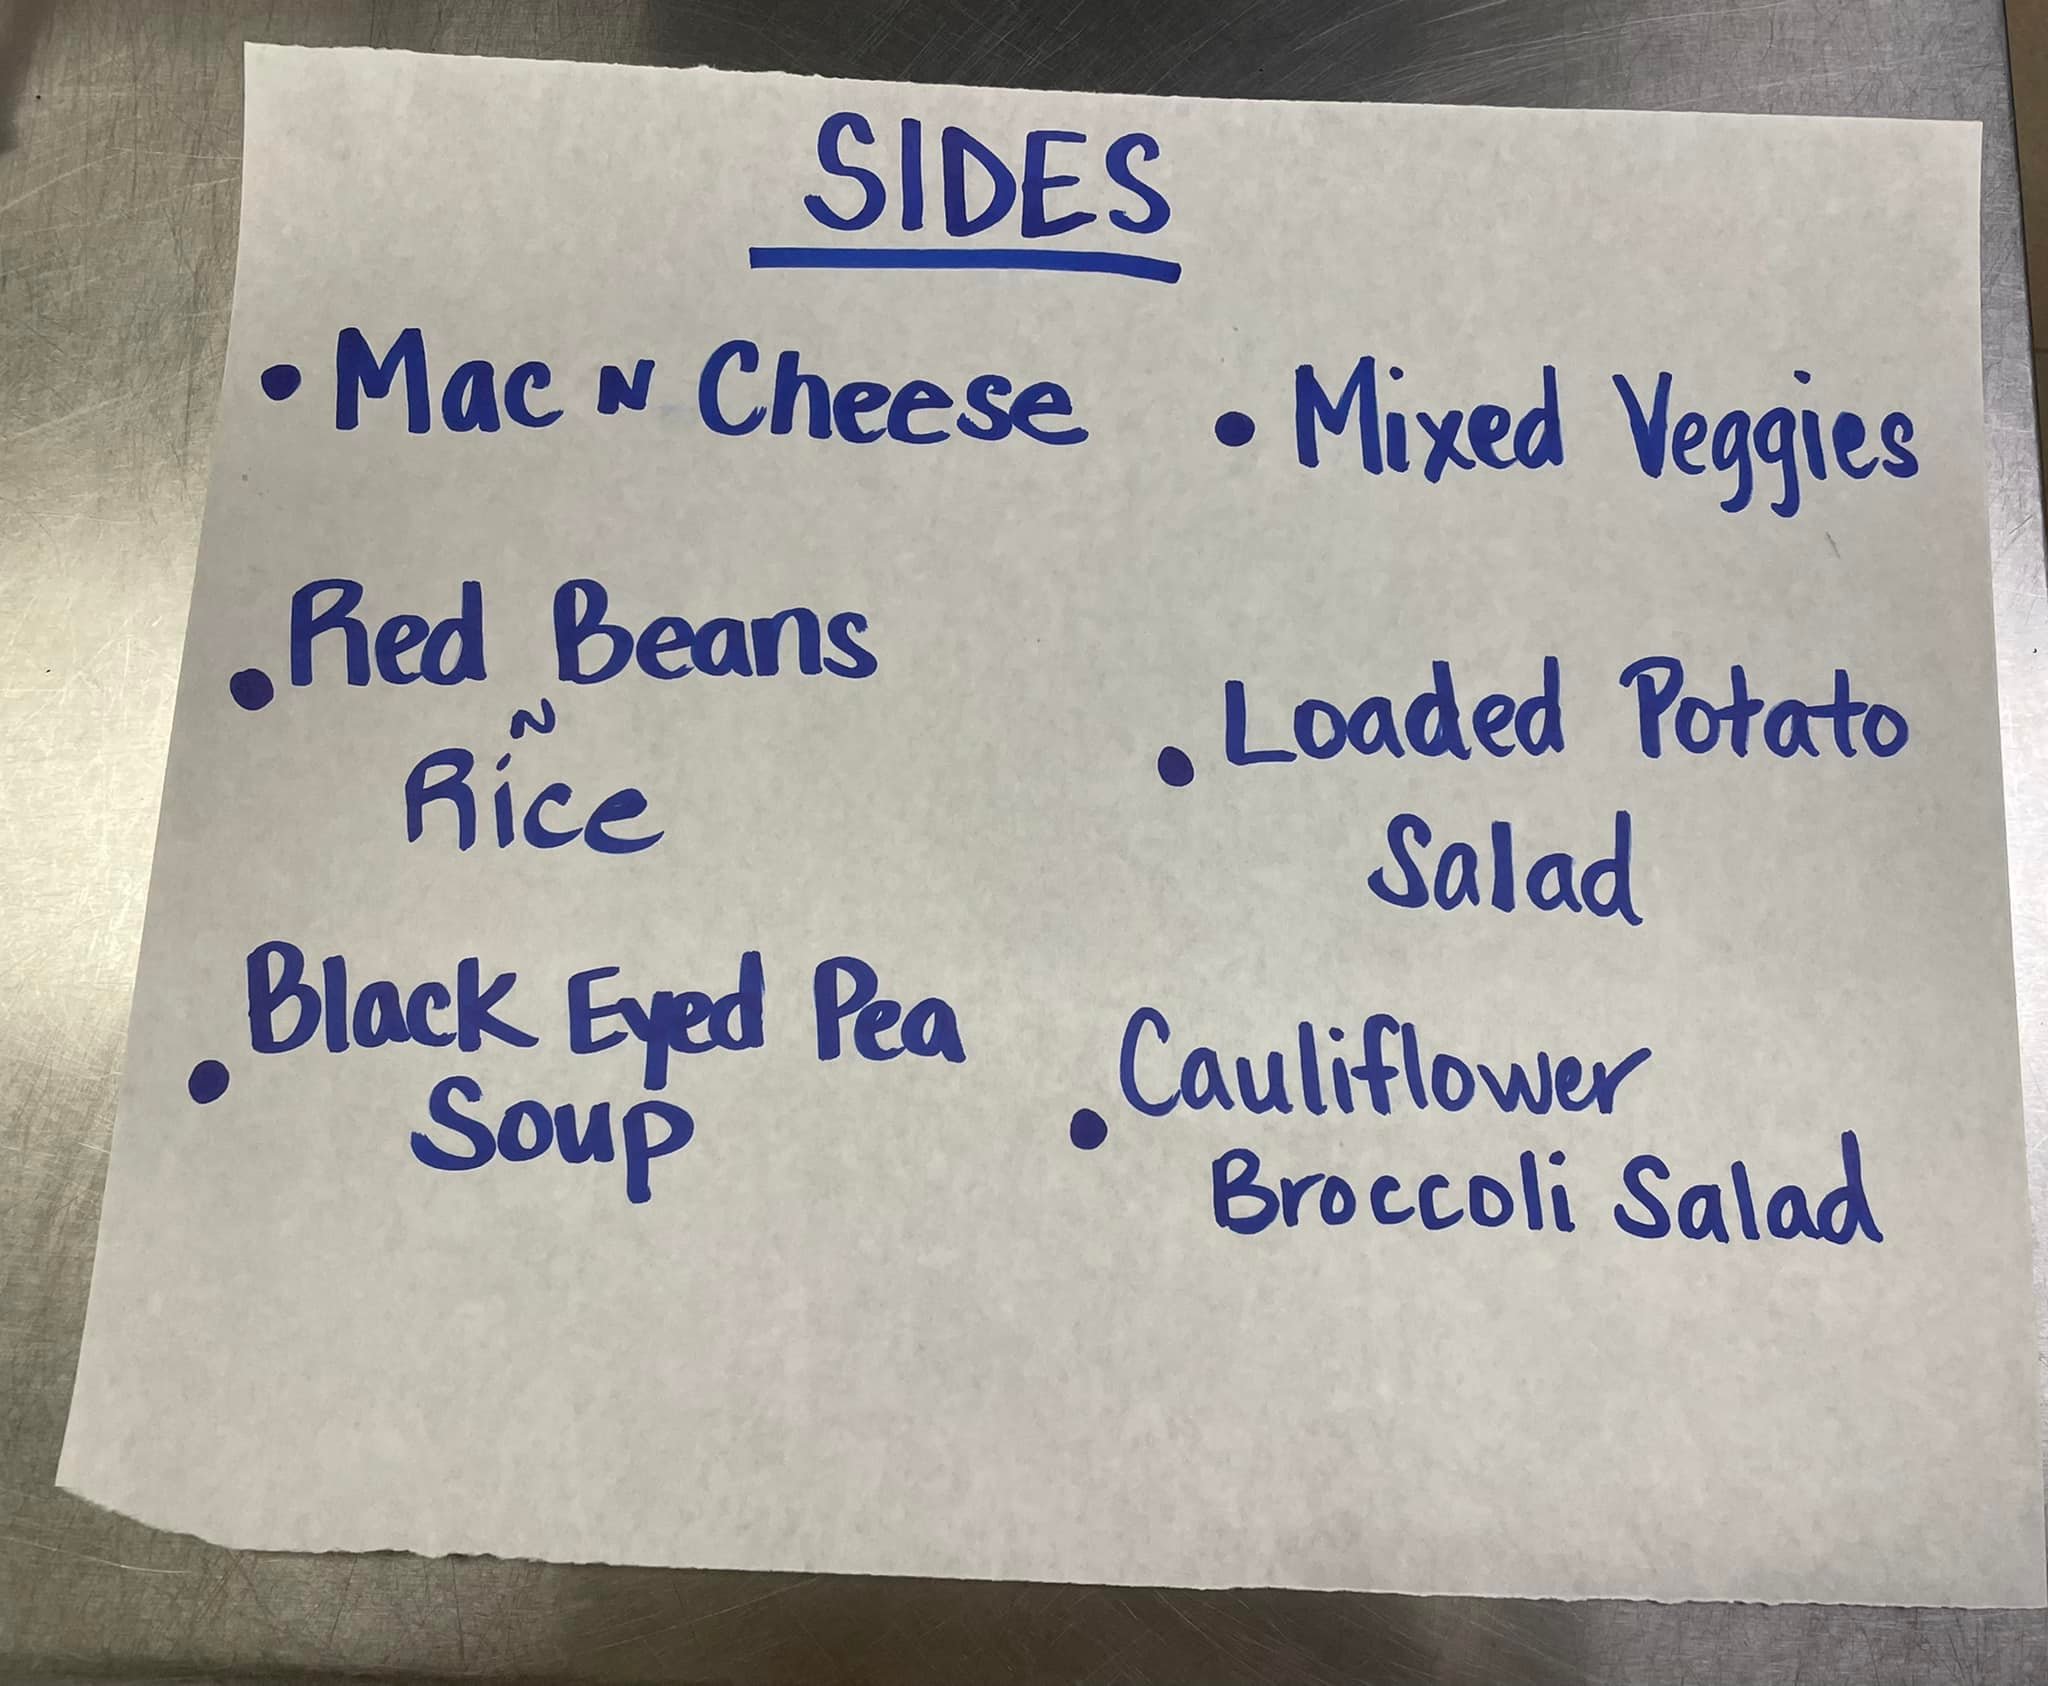 SIDES
• Mac N Cheese
• Red Beans
N
Rice
• Black Eyed Pea
Soup
• Mixed Veggies
• Loaded Potato
Salad
• Cauliflower
Broccoli Salad